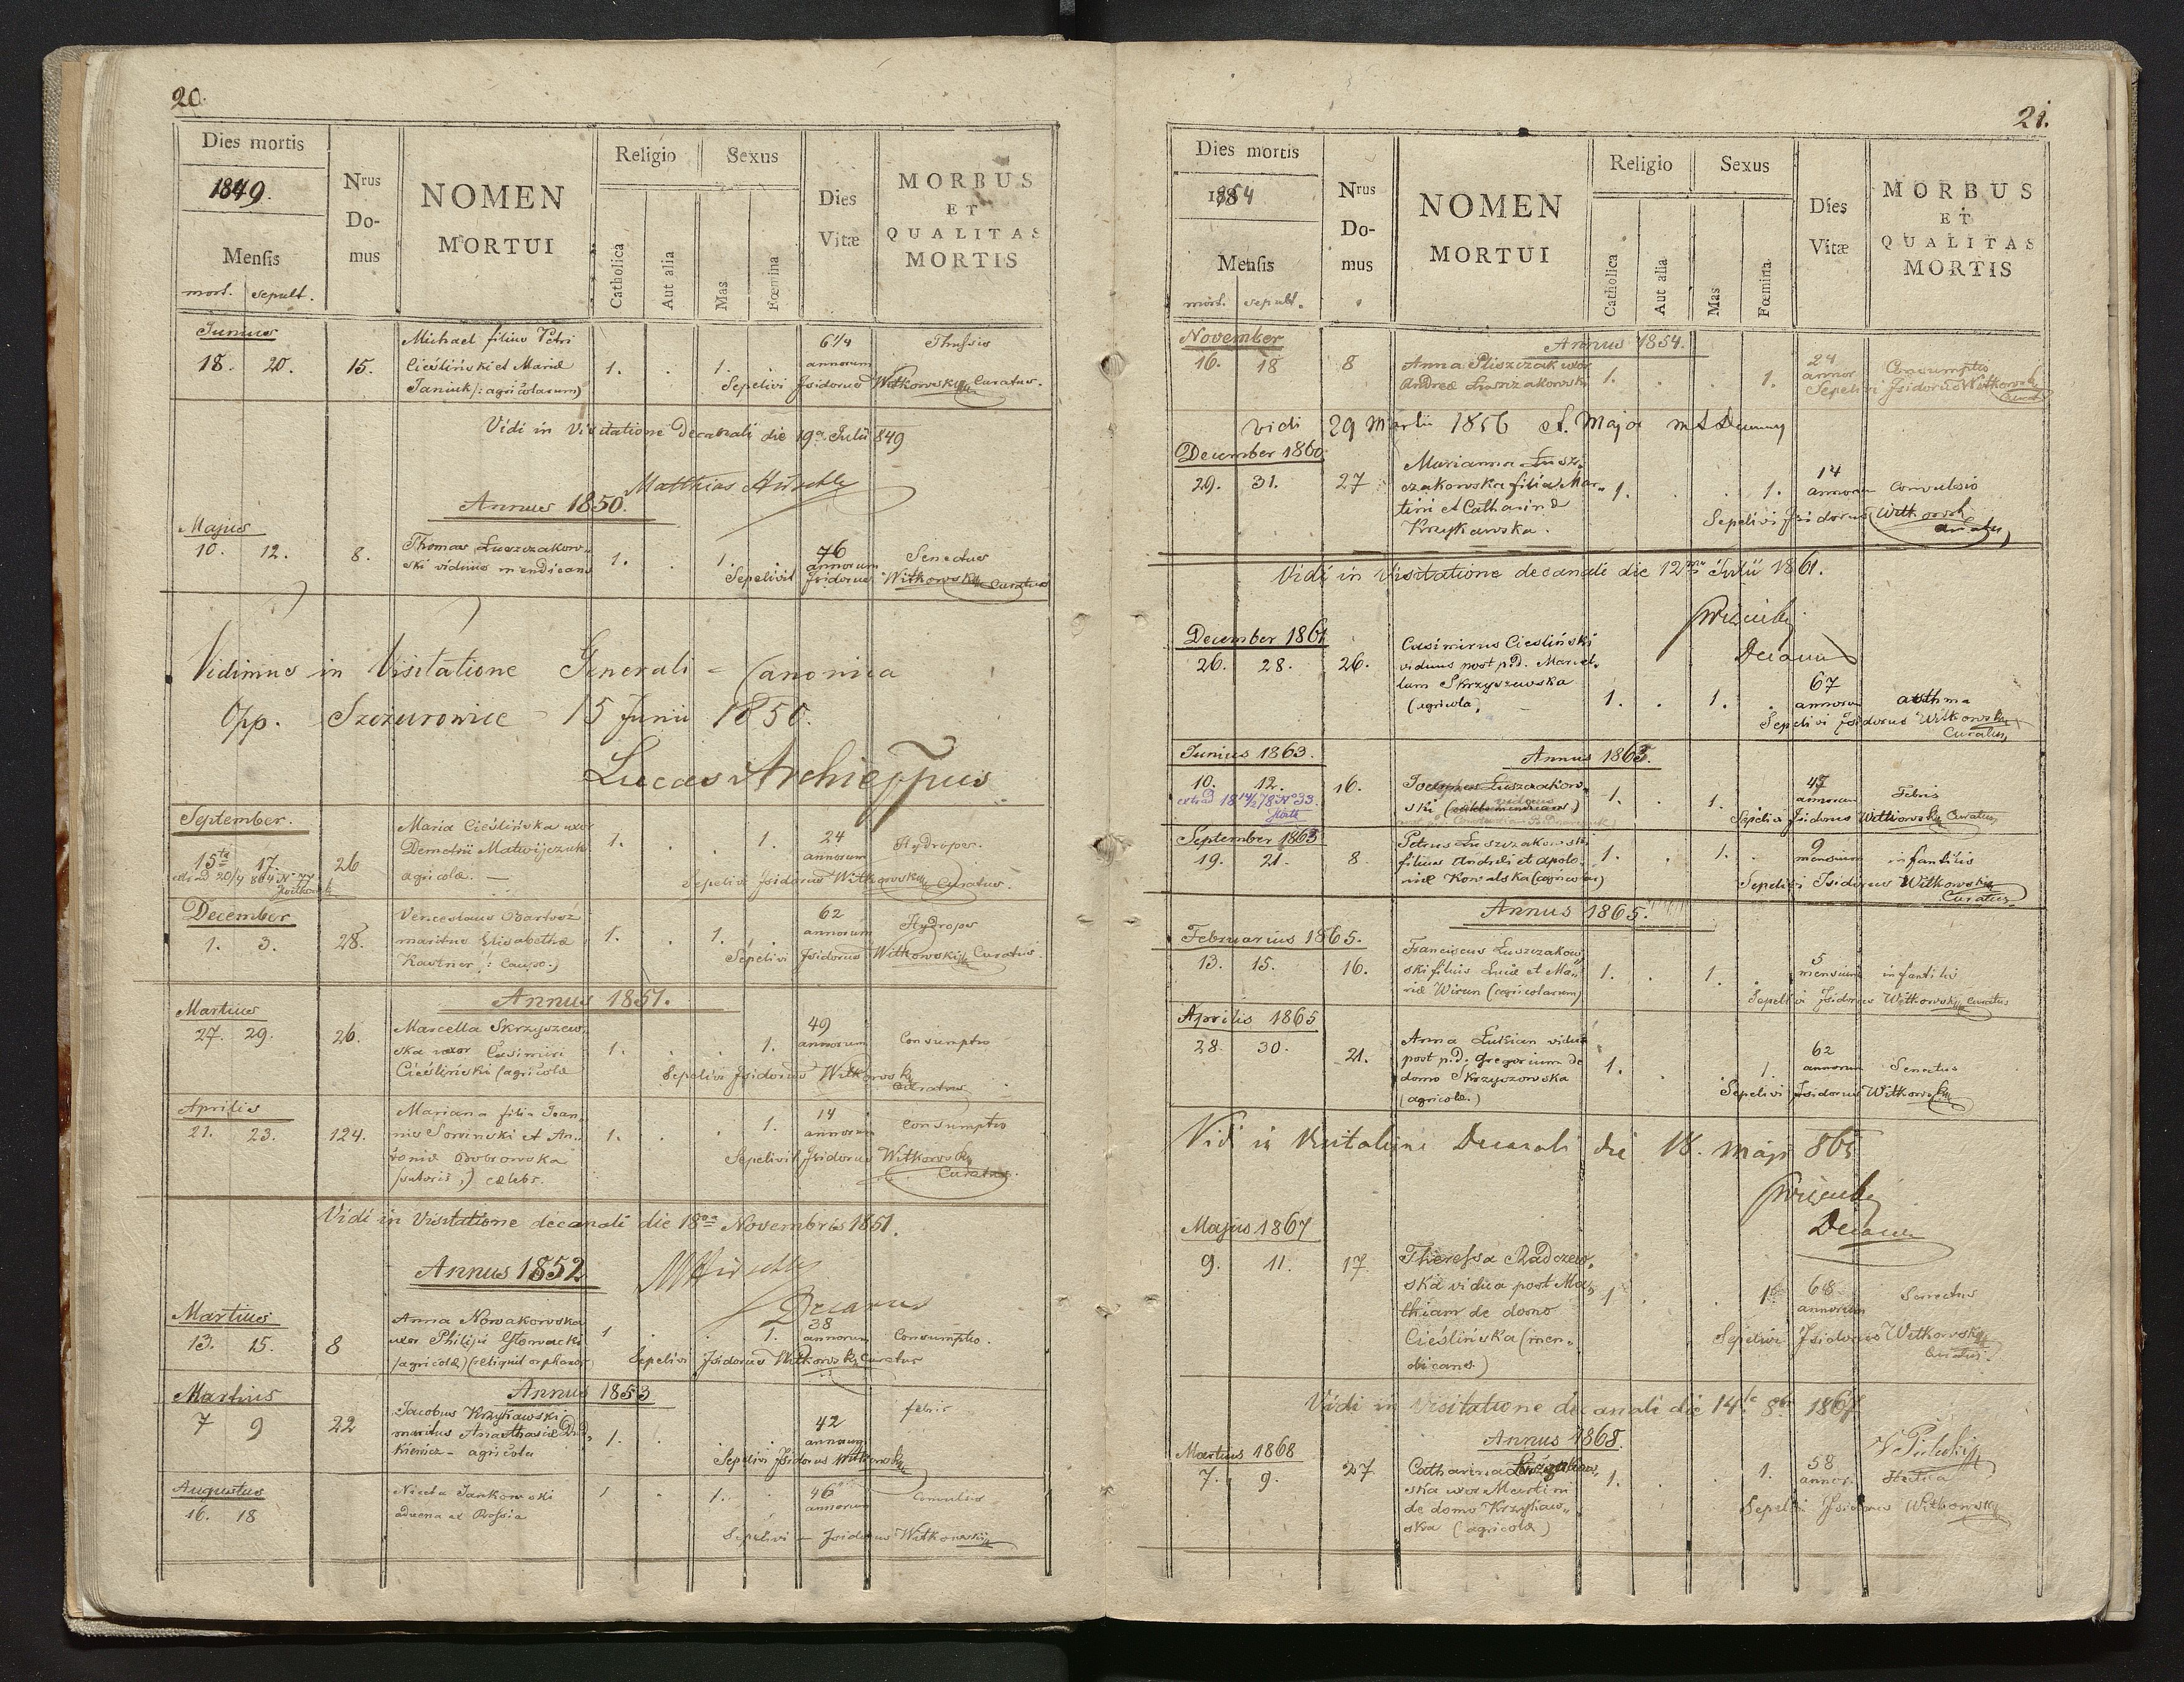 20.
Dies mortis
1849.
Mensis
mort. sepult.
Nrus
Do-
mus
NOMEN
MORTUI
Religio
Catholica
Aut alia
Sexus
Mas
Fœmina
Dies
Vitæ
MORBUS
ET
QUALITAS
MORTIS
Junius
18. 20. 15.
Michael filius Petri
Cieśliński et Mariæ
Janiuk /: agricolarum)
1. . 1.
6 1/4
annorum
Thussis
Sepelivi Isidorus Witkowski Curatus.
Vidi in Visitatione Decanali die 19a Julii 849
Matthias
Annus 1850.
Majus
10. 12. 8.
Thomas Łuszczakow-
ski viduus mendicans
1. . 1.
76
annorum
Senectus
Sepelivit Isidorus Witkowski Curatus
Vidimus in Visitatione Generali - Canonica
Opp. Szczurowice 15 Junii 1850.
Lucas Archieppus
September.
15ta 17. 26
extrad 20/4 864 N
Maria Cieślińska uxor
Demetrii Matwijczuk
agricolæ. —
1. . . 1.
24
annorum
Hydrops.
Sepelivi Isidorus Witkowski Curatus.
December
1. 3. 28.
Venceslaus Bartosz
maritus Elisabethæ
Kastner /: Caupo.)
1. . 1. .
62
annorum
Hydrops
Sepelivi Isidorus Witkowski Curatus.
Annus 1851.
Martius
27. 29. 26.
Marcella Skrzyszew-
ska uxor Casimiri
Cieśliński (agricolæ
1. . . 1.
49
annorum
Consumptio
Sepelivi Isidorus Witkowski
Curatus
Aprilis
21. 23. 124.
Mariana filia Joan-
nis Sowinski et An-
toniæ Dobrowska
/sutoris,) celebs.
1. . . 1.
14
annorum
Consumptio
Sepelivit Isidorus Witkowski
Curatus.
Vidi in Visitatione decanali die 18va Novembris 1851.
Annus 1852
Decanus
Martius
13. 15. 8
Anna Nowakowska
uxor Philipi Głowacki
/agricolæ) (reliquit orphanos
1 . . 1.
38
annorum
Consumptio.
Sepelivi Isidorus Witkowski Curatus
Annus 1853
Martius
7 9 22
Jacobus Krzykawski
maritus Anasthasiæ
agricola
1. . .
42
annorum
febris
Sepelivi Isidorus Witkowski
Augustus
16. 18
Jankowski
advena ex Rossia
1 . 1.
46
annorum
Convulsio
Sepelivi — Isidorus Witkowski
21.
Dies mortis
1854
Mensis
mort. sepult.
Nrus
Do-
mus
NOMEN
MORTUI
Religio
Catholica
Aut alia
Sexus
Mas
Fœmina
Dies
Vitæ
MORBUS
ET
QUALITAS
MORTIS
Annus 1854.
November
16. 18 8
Anna Pliszczak uxor
Andreæ Łuszczakowski
1. . . 1.
24
annor
Consumptio
Sepelivi Isidorus Witkowski
Curat
vidi 29 Martii 1856
December 1860.
29. 31. 27
Marianna Łusz-
czakowska filia Mar-
tini et Catharinæ
Krzykawska.
1. . . 1.
14
annorum
Convulsio
Sepelivi Isidorus Witkowski
Curatus
Vidi in Visitatione decanali die 12ma Julii 1861.
Decanus
December 1861
26. 28. 26.
Casimirus Cieśliński
viduus post p.d. Marcel-
lam Skrzyszewska
(agricola)
1. . 1. .
67
annorum
asthma
Sepelivi Isidorus Witkowski
Curatus
Annus 1863.
Junius 1863.
10. 12. 16.
extrad 18 14/2 78 N° 33.
Josephus Łuszczakow-
ski
1. . 1.
47
annorum
Febris
Sepelivi Isidorus Witkowski Curatus
September 1863
19. 21. 8.
Petrus Łuszczakowski
filius Andreæ et Apolo-
niæ Kowalska (agricolar)
1. . 1. .
9
mensium
infantilis
Sepelivi Isidorus Witkowski
Curatus.
Annus 1865.
Februarius 1865.
13. 15. 16.
Franciscus Łuszczakow-
ski filius Lucæ et Ma-
riæ Wirun (agricolarum)
1. . 1.
5
mensium
infantilis
Sepelivi Isidorus Witkowski Curatus
Aprilis 1865
28. 30. 21.
Anna Łukian vidua
post p.d. Gregorium de
domo Skrzyszowska
(agricolæ.)
1. . . 1.
62
annorum
Senectus
Sepelivi Isidorus Witkowski
Vidi in Visitatione Decanali die 18. maji 865
Decanus
Majus 1867
9. 11. 17
Theressa Radczew-
ska vidua post Ma-
thiam de domo
Cieślińska (men-
dicans)
1 . . 1
68
annorum
Senectus
Sepelivi Isidorus Witkowski
Curatus.
Vidi in Visitatione decanali die 14. 8br 1867
Annus 1868.
Martius 1868
7. 9. 27
Catharina Łuszczakow-
ska uxor Martini
de domo Krzykaw-
ska (agricolæ)
1. . . 1.
58
annor.
Hectica
Sepelivi Isidorus Witkowski